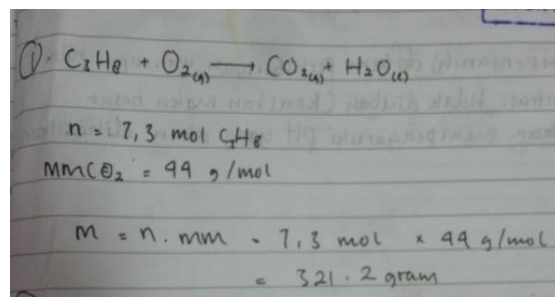 ①. C₃H₈ + O₂(g) ⟶ CO₂(g) + H₂O(l)
n = 7,3 mol C₃H₈
MM CO₂ = 44 g/mol
m = n . mm = 7,3 mol × 44 g/mol
= 321.2 gram